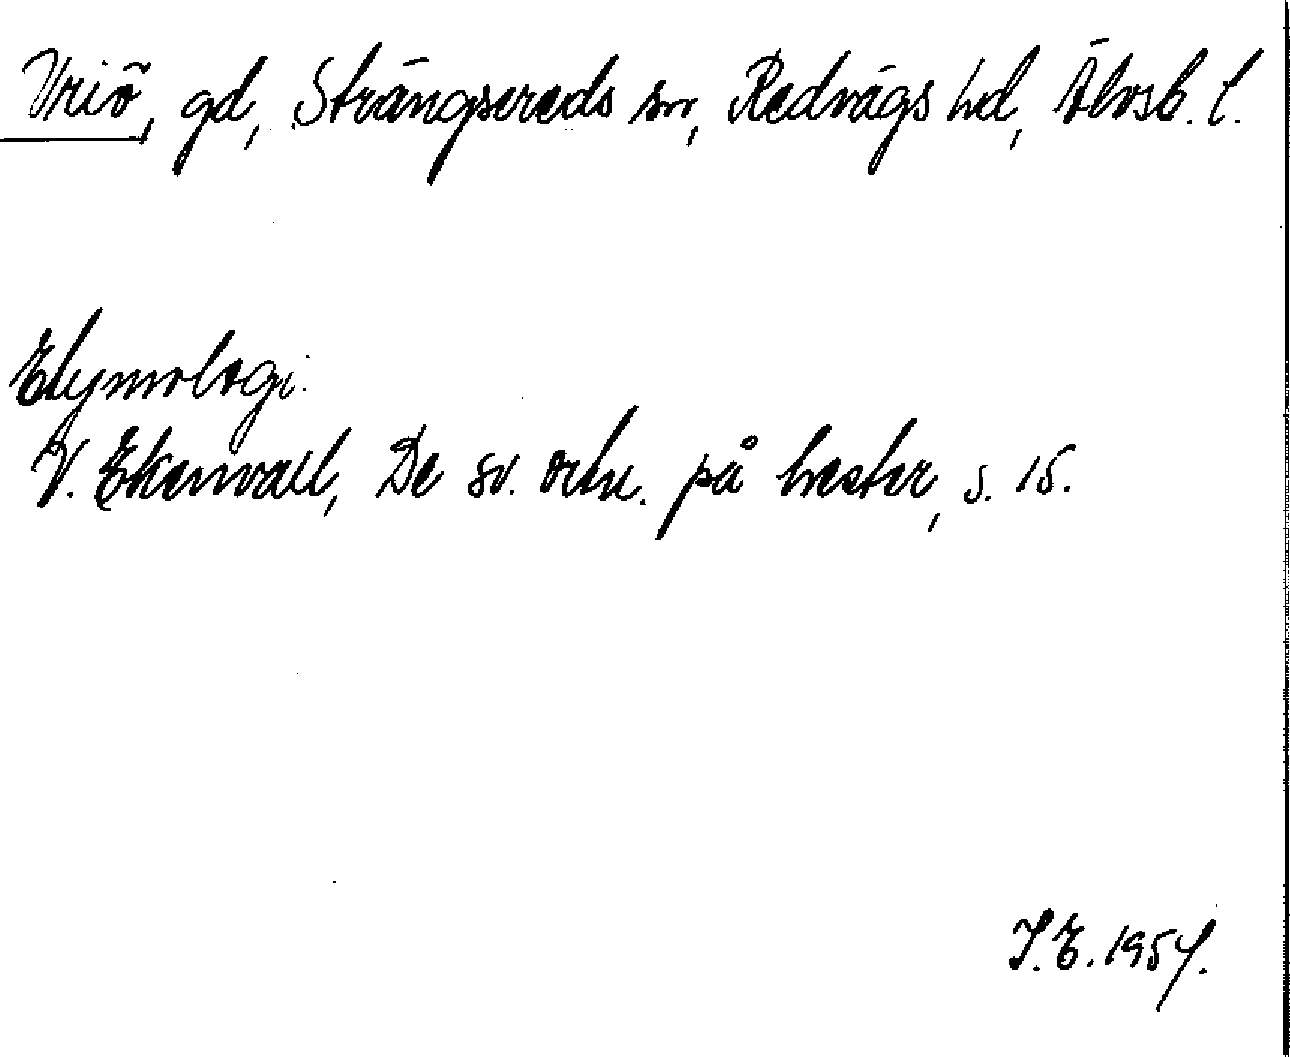 Vriö, gd, Strängsereds sn, Redvägs hd, Älvsb. l.
Etymologi.
V. Ekenvall, De sv. ortn. på hester, s. 15.
I.E. 1954.